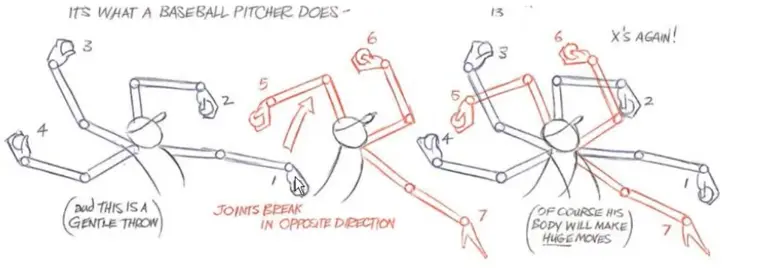 IT'S WHAT A BASEBALL PITCHER DOES-
13
3
2
4
1
(AND THIS IS A
GENTLE THROW)
6
5
JOINTS BREAK
IN OPPOSITE DIRECTION
7
X'S AGAIN!
6
3
5
2
4
1
7
(OF COURSE HIS
BODY WILL MAKE
HUGE MOVES)